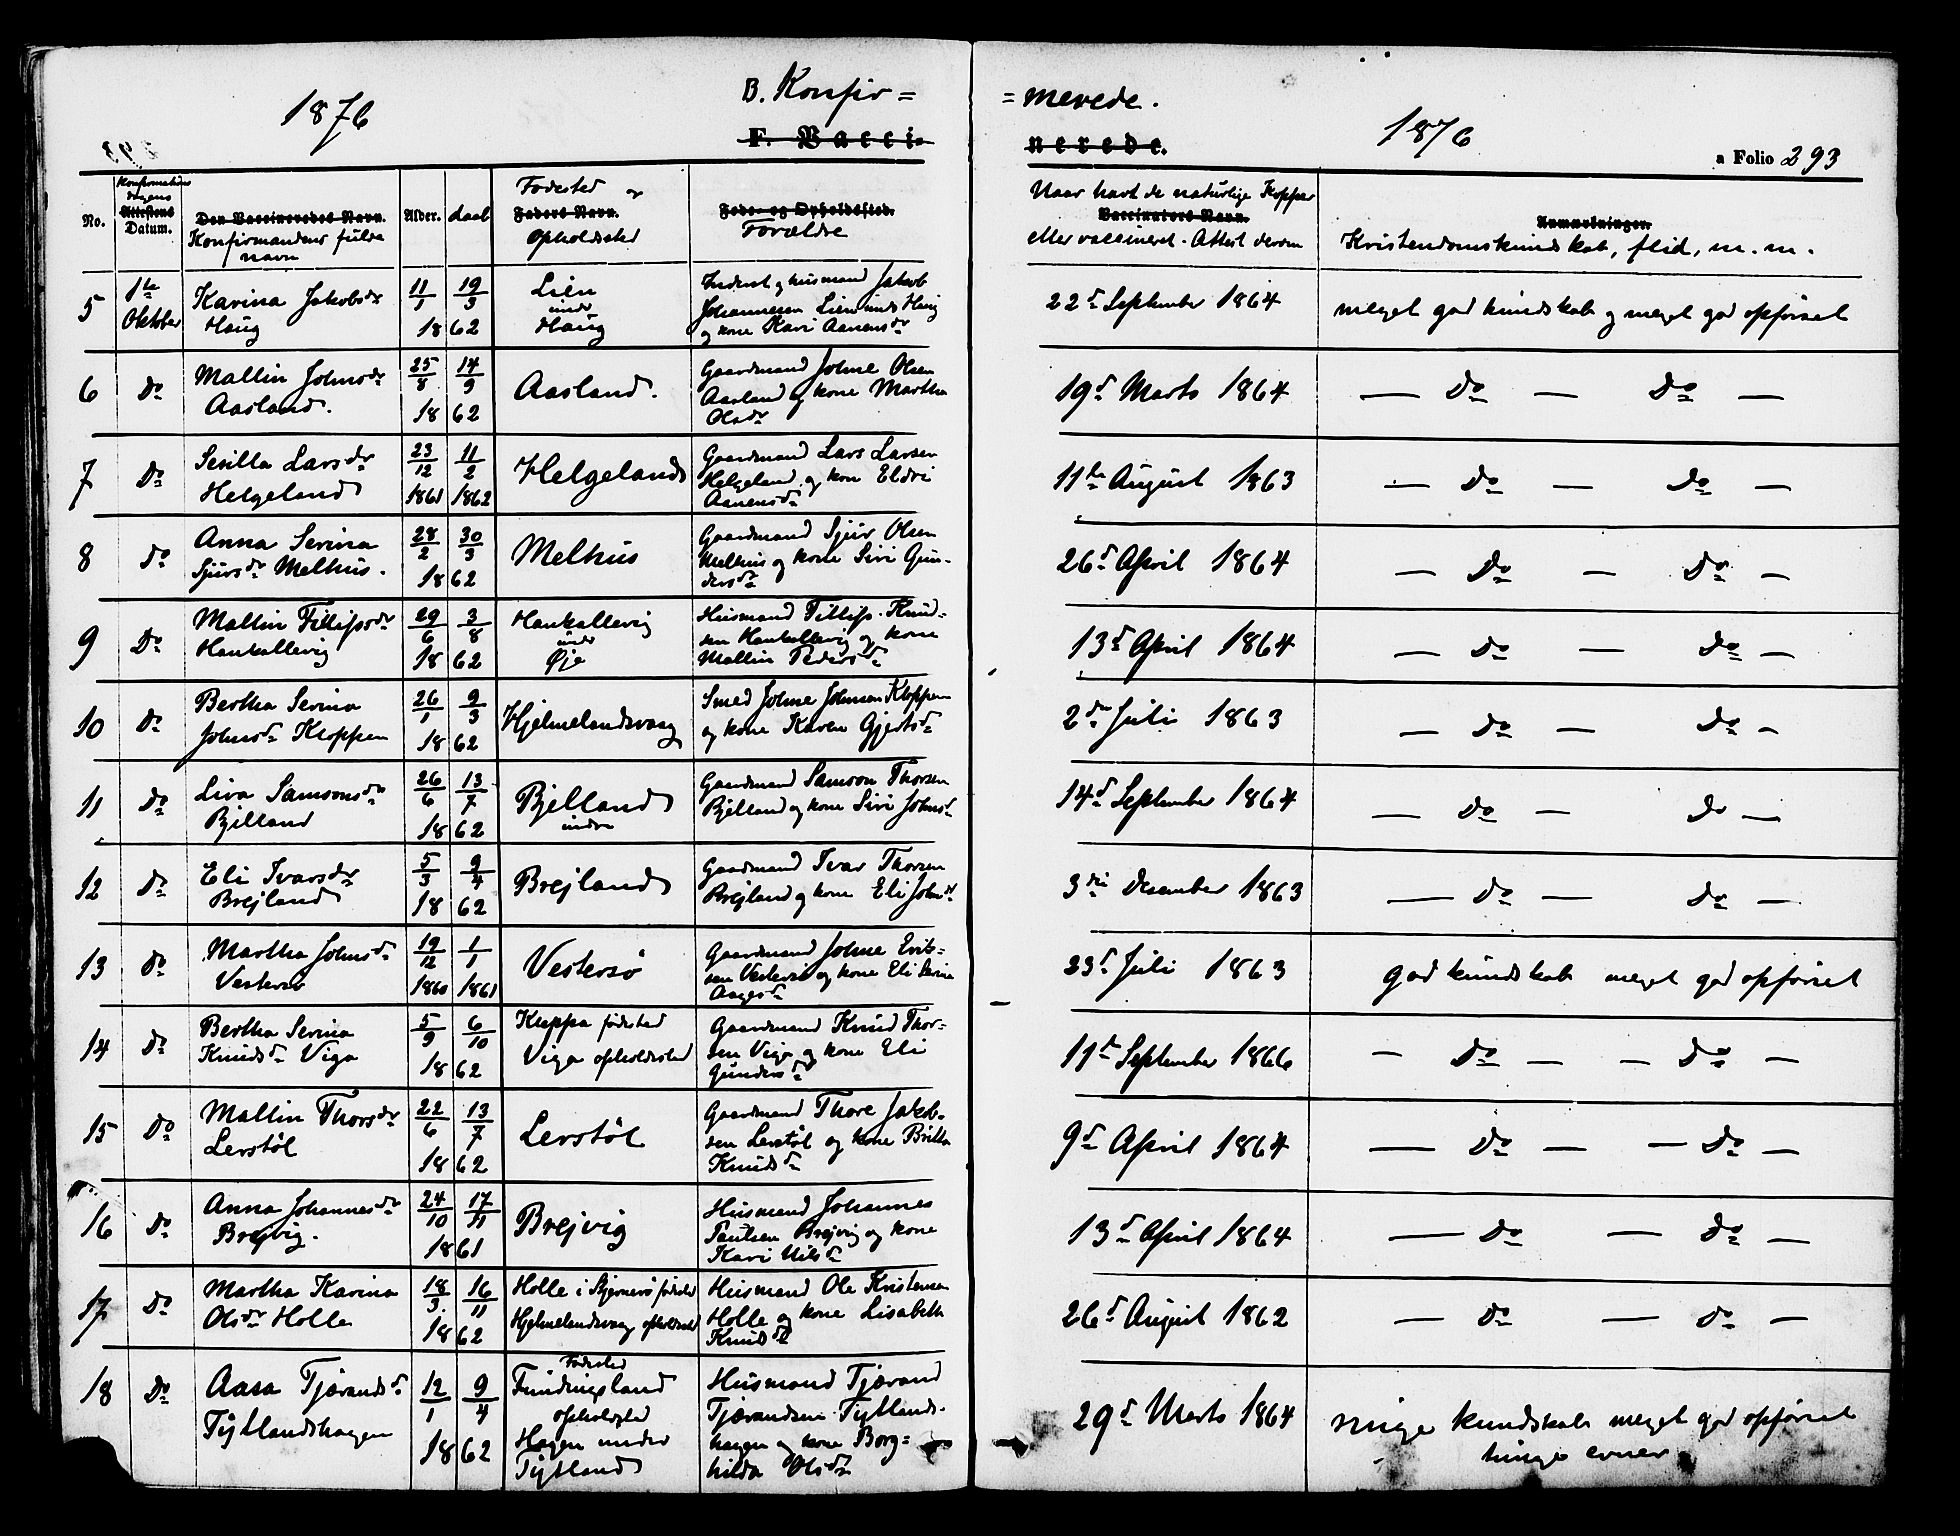 1876
B. Konfir=
F. Vacci-
=merede.
nerede.
1876
a Folio 293
No.
Konfirmations
dagens
Attestens
Datum.
Den Vaccineredes Navn.
Konfirmandens fulde
navn
Alder.
daab
Fødested og
Faders Navn.
Opholdssted
Føde- og Opholdssted.
Forældre
Naar havt de naturlige Kopper
Vaccinators Navn.
eller vaccineret. Attest derom
Anmærkninger.
Kristendomskundskab, flid, m. m.
5
1ste
Oktober
Karina Jakobsdr
Haug
11/1 19/3
1862
Lien
under
Haug
Inderst og husmand Jakob
Johannesen Lien under Haug
og kone Kari Aanensdr
22d September 1864
meget god kundskab og meget god opførsel
6
Do
Mallin Johnsdr
Aasland.
25/8 14/9
1862
Aasland.
Gaardmand Johne Olsen
Aasland og kone Martha
Olsdr
19d Marts 1864
— Do — Do —
7
Do
Sesilla Larsdr
Helgeland
23/12 11/2
1861 1862
Helgeland
Gaardmand Lars Larsen
Helgeland og kone Eldri
Aanensdr
11te August 1863
— Do — Do —
8
Do
Anna Serina
Sjursdr Melhus.
28/2 30/3
1862
Melhus
Gaardmand Sjur Olsen
Melhus og kone Siri Gun-
dersdr
26d April 1864
— Do — Do —
9
Do
Mallin Fillipsdr
Hankallevig
29/6 3/8
1862
Hankallevig
under
Øje
Husmand Fillip Knud-
sen Hankallevig og kone
Mallin Pedersdr
13d April 1864
— Do — Do —
10
Do
Bertha Serina
Johnsdr Kloppen
26/1 9/3
1862
Hjelmelandsvaag
Smed Johne Johnsen Kloppen
og kone Karen Gjertsdr
2den Juli 1863
— Do — Do —
11
Do
Liva Samsonsdr
Bjelland
26/6 13/7
1862
Bjelland
indre
Gaardmand Samson Thorsen
Bjelland og kone Siri Johnsdr
14d September 1864
— Do — Do —
12
Do
Eli Ivarsdr
Brejland
5/3 9/4
1862
Brejland
Gaardmand Ivar Thorsen
Brejland og kone Eli Johnsdr
3die Desember 1863
— Do — Do —
13
Do
Martha Johnsdr
Vestersø
19/12 1/1
1860 1861
Vestersø
Gaardmand Johne Erik-
sen Vestersø og kone Eli
Aagesdr
23d Juli 1863
god kundskab meget god opførsel
14
Do
Bertha Serina
Knudsdr Viga
5/9 6/10
1862
Kleppa fødested
Viga opholdssted
Gaardmand Knud Thor-
sen Viga og kone Eli
Gundersdr
11d September 1866
— Do — Do —
15
Do
Mallin Thorsdr
Lerstøl
22/6 13/7
1862
Lerstøl
Gaardmand Thore Jakob-
sen Lerstøl og kone Britta
Knudsdr
9d April 1864
— Do — Do —
16
Do
Anna Johannesdr
Brejvig.
24/10 17/11
1861
Brejvig
Husmand Johannes
Paulsen Brejvig og kone
Kari Nilsdr
13d April 1864
— Do — Do —
17
Do
Martha Karina
Olsdr Holle
18/3 16/11
1862
Holle i Bjernerø fødested
Hjelmelandsvaag opholdssted
Husmand Ole Kristensen
Holle og kone Lisabeth
Knudsdr
26d August 1862
— Do — Do —
18
Do
Aasa Tjærandsdr
Tytlandshagen
12/1 9/4
1862
Fødested
Fundingsland
opholdssted
Hagen under
Tytland
Husmand Tjærand
Tjærandsen Tytlands-
hagen og kone Borg=
hilda Olsdr
29d Marts 1864
ringe kundskab meget god opførsel
ringe evner